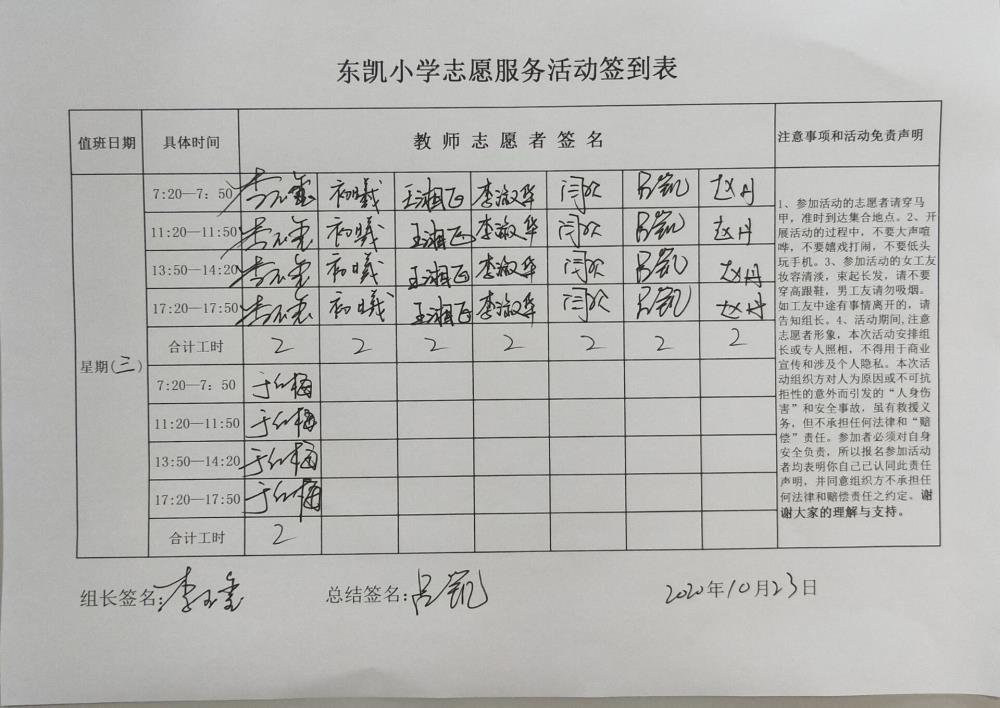 东凯小学志愿服务活动签到表
值班日期 具体时间 教师志愿者签名 注意事项和活动免责声明
7:20—7：50 初曦 王湘飞 李淑华 闫欣 吕凯 赵丹
11:20—11:50 初曦 王湘飞 李淑华 闫欣 吕凯 赵丹
13:50—14:20 初曦 王湘飞 李淑华 闫欣 吕凯 赵丹
17:20—17:50 初曦 王湘飞 李淑华 闫欣 吕凯 赵丹
合计工时 2 2 2 2 2 2 2
星期(三)
7:20—7：50 于红梅
11:20—11:50 于红梅
13:50—14:20 于红梅
17:20—17:50 于红梅
合计工时 2
1、参加活动的志愿者请穿马
甲，准时到达集合地点。2、开
展活动的过程中，不要大声喧
哗，不要嬉戏打闹，不要低头
玩手机。3、参加活动的女工友
妆容清淡，束起长发，请不要
穿高跟鞋，男工友请勿吸烟。
如工友中途有事情离开的，请
告知组长。4、活动期间,注意
志愿者形象，本次活动安排组
长或专人照相，不得用于商业
宣传和涉及个人隐私。本次活
动组织方对人为原因或不可抗
拒性的意外而引发的“人身伤
害”和安全事故，虽有救援义
务，但不承担任何法律和“赔
偿”责任。参加者必须对自身
安全负责，所以报名参加活动
者均表明你自己已认同此责任
声明，并同意组织方不承担任
何法律和赔偿责任之约定。谢
谢大家的理解与支持。
组长签名: 总结签名:吕凯 2020年10月23日